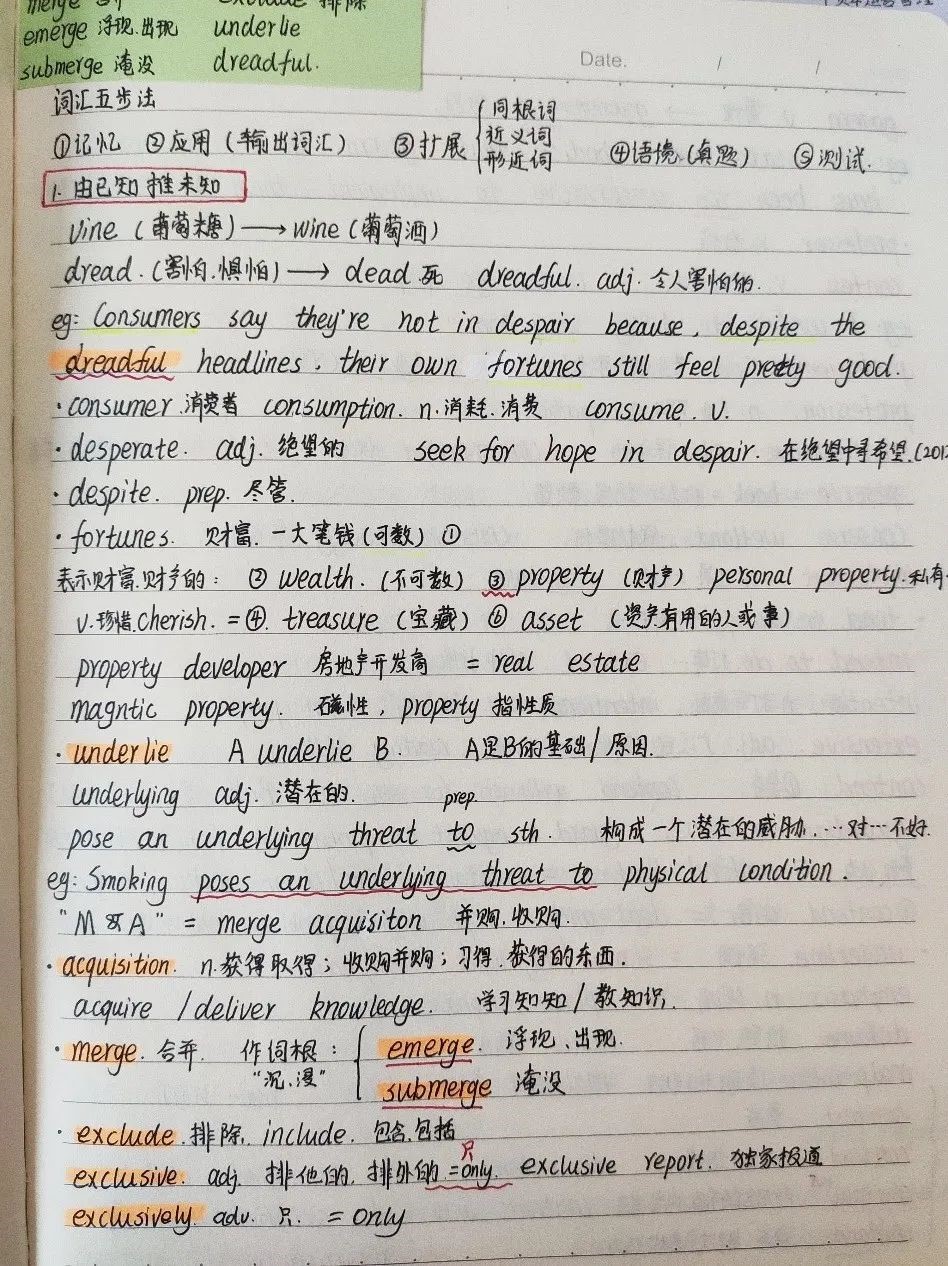 merge exclude 排除
emerge 浮现.出现 underlie
submerge 淹没 dreadful.
Date. / /
词汇五步法
①记忆 ②应用（输出词汇） ③扩展 { 同根词
近义词
形近词
④语境（真题） ⑤测试.
1. 由已知推未知
vine（葡萄糖）→ wine（葡萄酒）
dread.（害怕.惧怕）→ dead 死 dreadful. adj. 令人害怕的.
eg: Consumers say they're not in despair because, despite the
dreadful headlines, their own fortunes still feel pretty good.
·consumer.消费者 consumption. n.消耗.消费 consume. v.
·desperate. adj. 绝望的 seek for hope in despair. 在绝望中寻希望.(201
·despite. prep. 尽管.
·fortunes. 财富.一大笔钱(可数) ①
表示财富.财产的: ② wealth. (不可数) ③ property (财产) personal property.私有
v.珍惜.cherish. = ④. treasure (宝藏) ⑥ asset (资产有用的人或事)
property developer 房地产开发商 = real estate
magntic property. 磁性, property 指性质
·underlie A underlie B. A是B的基础/原因.
underlying adj. 潜在的. prep.
pose an underlying threat to sth. 构成一个潜在的威胁.…对…不好.
eg: Smoking poses an underlying threat to physical condition.
"M & A" = merge acquisiton 并购.收购.
·acquisition. n.获得取得；收购并购；习得.获得的东西.
acquire / deliver knowledge. 学习知知/教知识.
·merge. 合并. 作词根: { emerge. 浮现、出现.
"沉、浸" submerge 淹没
·exclude.排除. include. 包含.包括
只
exclusive. adj. 排他的. 排外的 =only. exclusive report. 独家报道
exclusively. adv. 只. = only